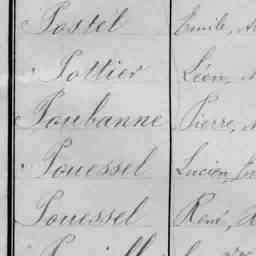 Postel Emile,
Pottier Léon,
Poubanne Pierre,
Pouessel Lucien,
Pouessel René,